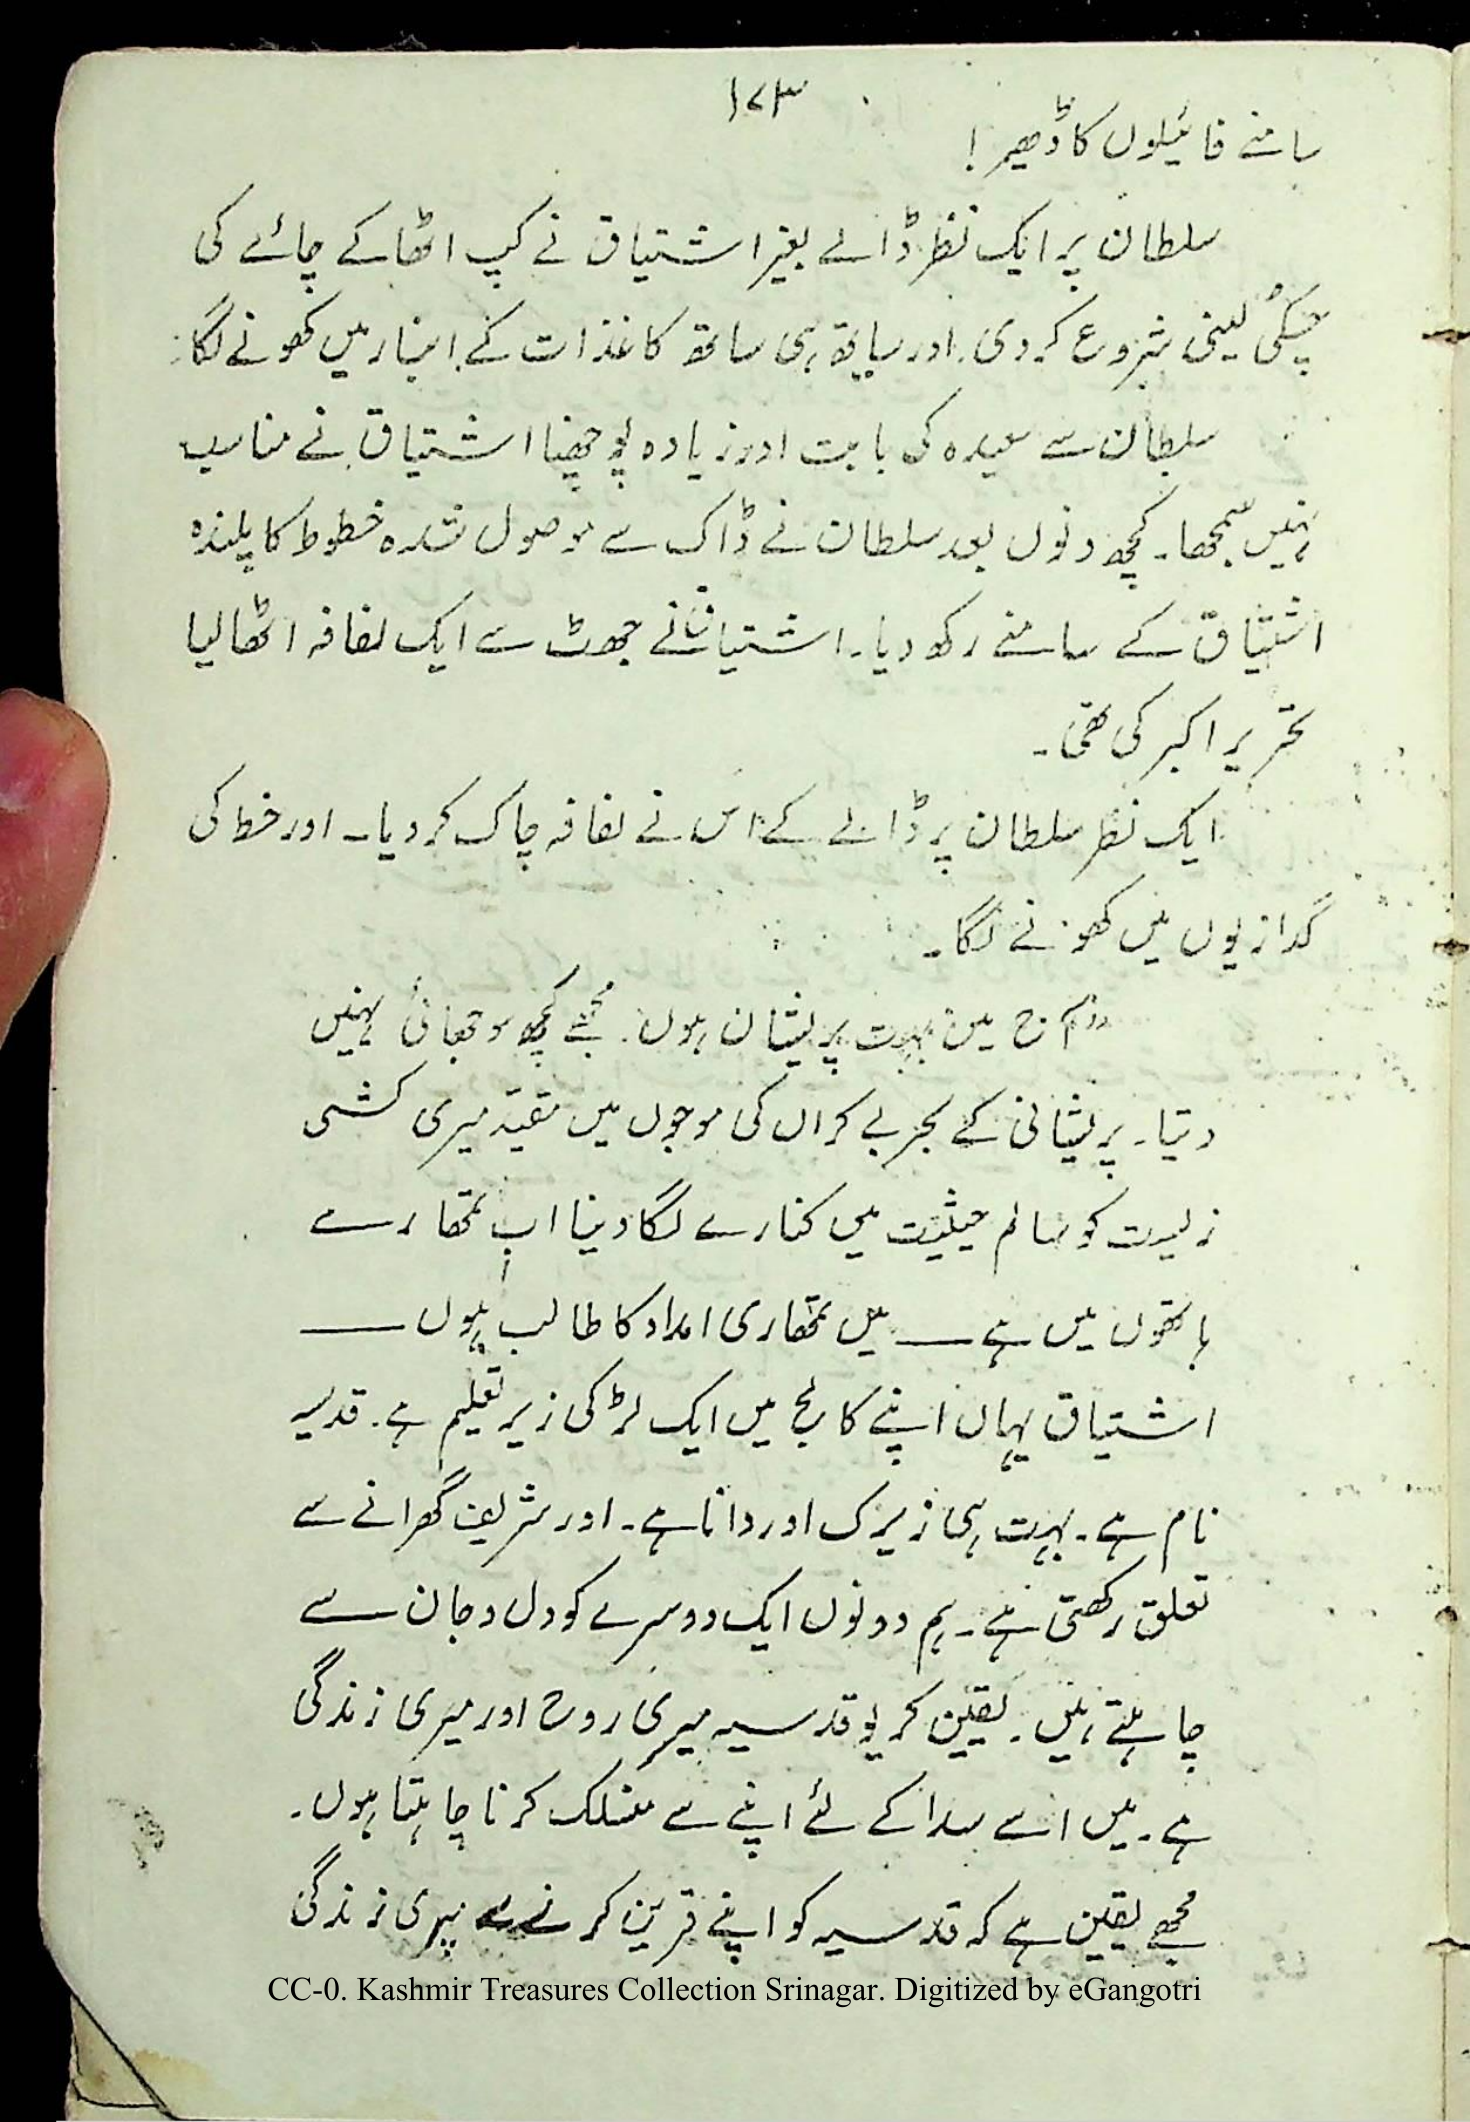 ۱۷۳
سامنے فائیلوں کا ڈھیر !
سلطان پر ایک نظر ڈالے بغیر اشتیاق نے کپ اٹھا کے چائے کی
چسکی لینی شروع کر دی۔ اور ساتھ ہی ساتھ کاغذات کے انبار میں کھونے لگا۔
سلطان سے سعیدہ کی بابت اور زیادہ پوچھنا اشتیاق نے مناسب
نہیں سمجھا۔ کچھ دنوں بعد سلطان نے ڈاک سے موصول شدہ خطوط کا پلندہ
اشتیاق کے سامنے رکھ دیا۔ اشتیاق نے جھٹ سے ایک لفافہ اٹھا لیا
تحریر اکبر کی تھی۔
ایک نظر سلطان پر ڈالے کے اس نے لفافہ چاک کر دیا۔ اور خط کی
گدازیوں میں کھونے لگا۔
"آج میں بہت پریشان ہوں۔ مجھے کچھ سوجھائی نہیں
دیتا۔ پریشانی کے بحر بے کراں کی موجوں میں مقید میری کشتی
زیست کو سالم حیثیت میں کنارے لگا دینا اب تمھارے
ہاتھوں میں ہے ــــ میں تمھاری امداد کا طالب ہوں ــــ
اشتیاق یہاں اپنے کالج میں ایک لڑکی زیر تعلیم ہے۔ قدسیہ
نام ہے۔ بہت ہی زیرک اور دانا ہے۔ اور شریف گھرانے سے
تعلق رکھتی ہے۔ ہم دونوں ایک دوسرے کو دل و جان سے
چاہتے ہیں۔ یقین کر لو قدسیہ میری روح اور میری زندگی
ہے۔ میں اسے سدا کے لئے اپنے سے منسلک کرنا چاہتا ہوں۔
مجھے یقین ہے کہ قدسیہ کو اپنے قرین کرنے سے میری زندگی
CC-0. Kashmir Treasures Collection Srinagar. Digitized by eGangotri